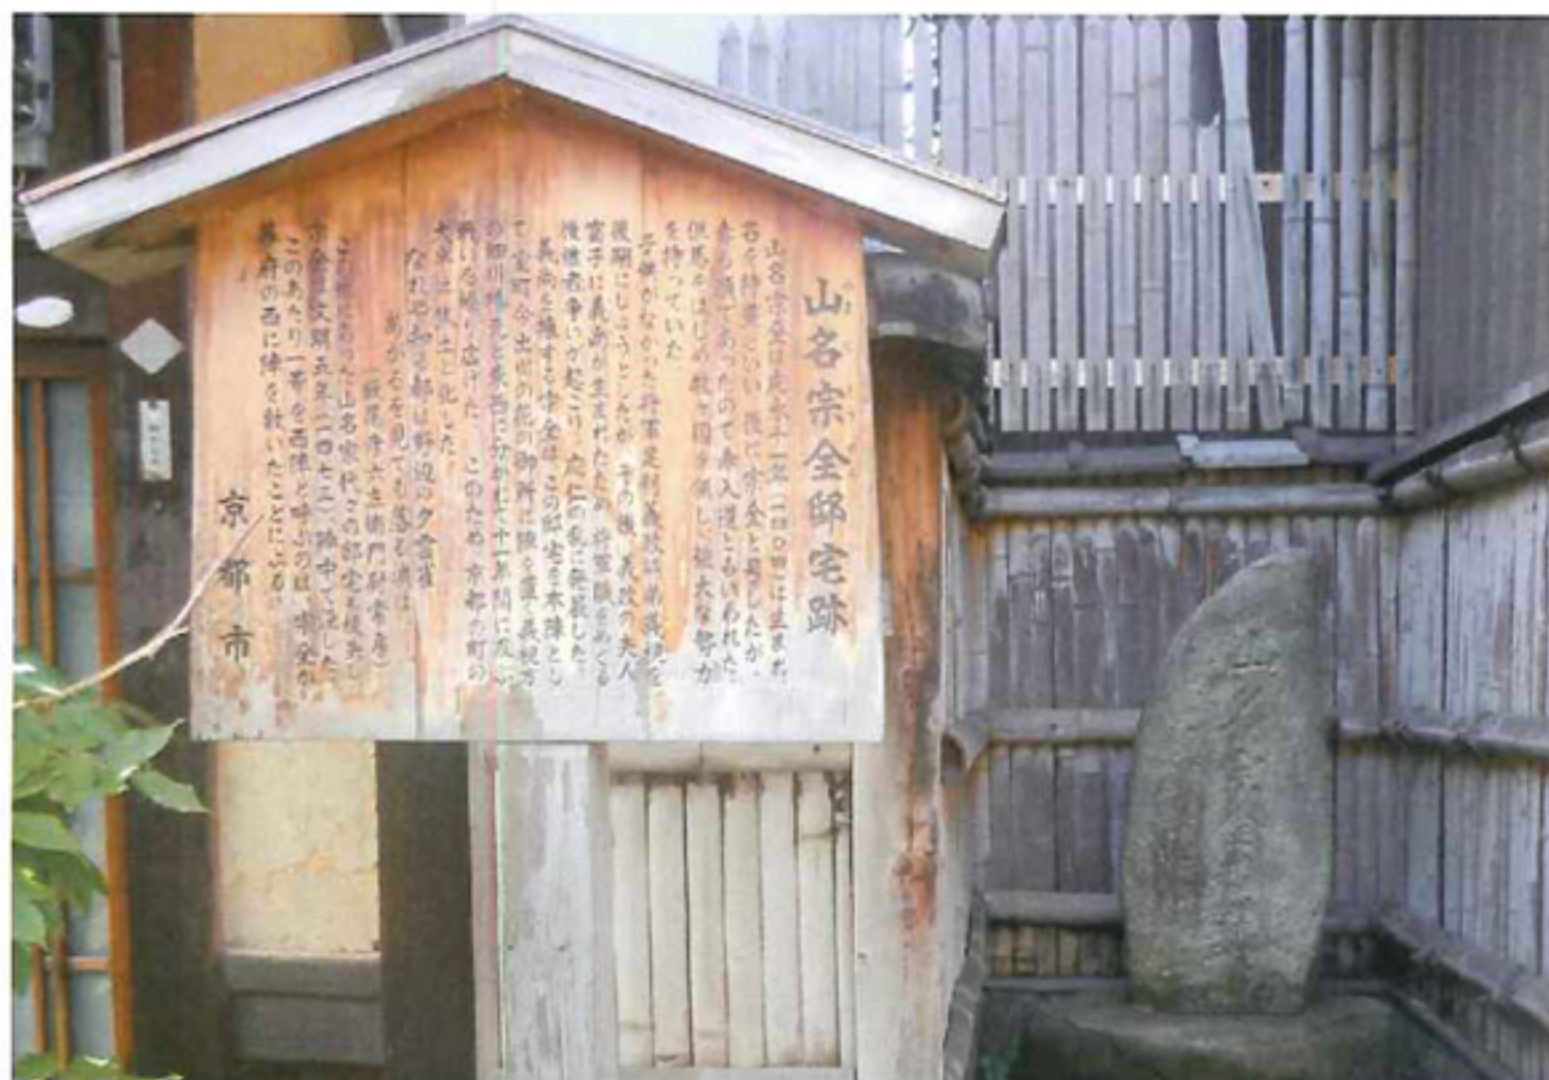 山名宗全邸宅跡
山名宗全は応永十一年（一四〇四）に生まれた
名を持豊といい、後に宗全と号したが、
赤ら顔であったので赤入道ともいわれた。
但馬をはじめ数ヵ国を領し、強大な勢力
を持っていた
子供がなかった将軍足利義政は弟義視を
後嗣にしようとしたが、その後、義政の夫人
富子に義尚が生まれたため、将軍職をめぐる
後継者争いが起こり、応仁の乱に発展した。
義尚を擁する宗全はこの邸宅を本陣とし
て室町今出川の花の御所に陣を置く義視方
の細川勝元と東西に分れ十一年間に及ぶ
戦いを繰り広げた このため京都の町の
大半は焦土と化した
なれや知る都は野辺の夕雲雀
あがるを見ても落る涙は
（飯尾彦六左衛門尉常房）
この地にあった山名家代々の邸宅も焼失し
宗全は文明五年（一四七三）陣中で没した。
このあたり一帯を西陣と呼ぶのは、宗全が
幕府の西に陣を敷いたことによる。
京都市